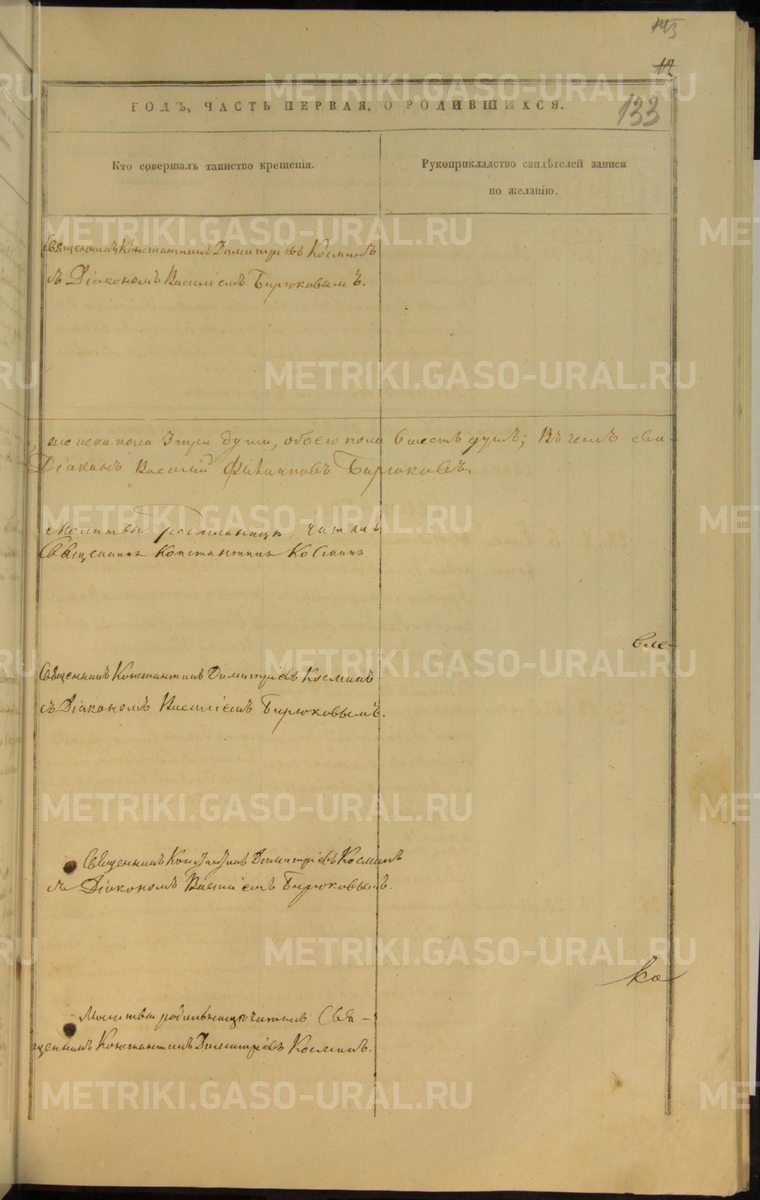 143
12
133
ГОДЪ, ЧАСТЬ ПЕРВАЯ, О РОДИВШИХСЯ.
Кто совершалъ таинство крещенія.
Рукоприкладство свидѣтелей записи по желанію.
Священникъ Константинъ Димитріевъ Косминъ
съ Діакономъ Василіемъ Бирюковымъ.
женска пола 3 три души, обоего пола 6 шесть душъ; Въ чемъ сви-
Діаконъ Василій Филипповъ Бирюковъ.
Молитвы родильницѣ читалъ
Священникъ Константинъ Косминъ
вле-
Священникъ Константинъ Димитріевъ Косминъ
съ Діакономъ Василіемъ Бирюковымъ.
Священникъ Константинъ Димитріевъ Косминъ
съ Діакономъ Василіемъ Бирюковымъ.
ка
Молитвы родильницѣ читалъ Свя-
щенникъ Константинъ Димитріевъ Косминъ.
METRIKI.GASO-URAL.RU